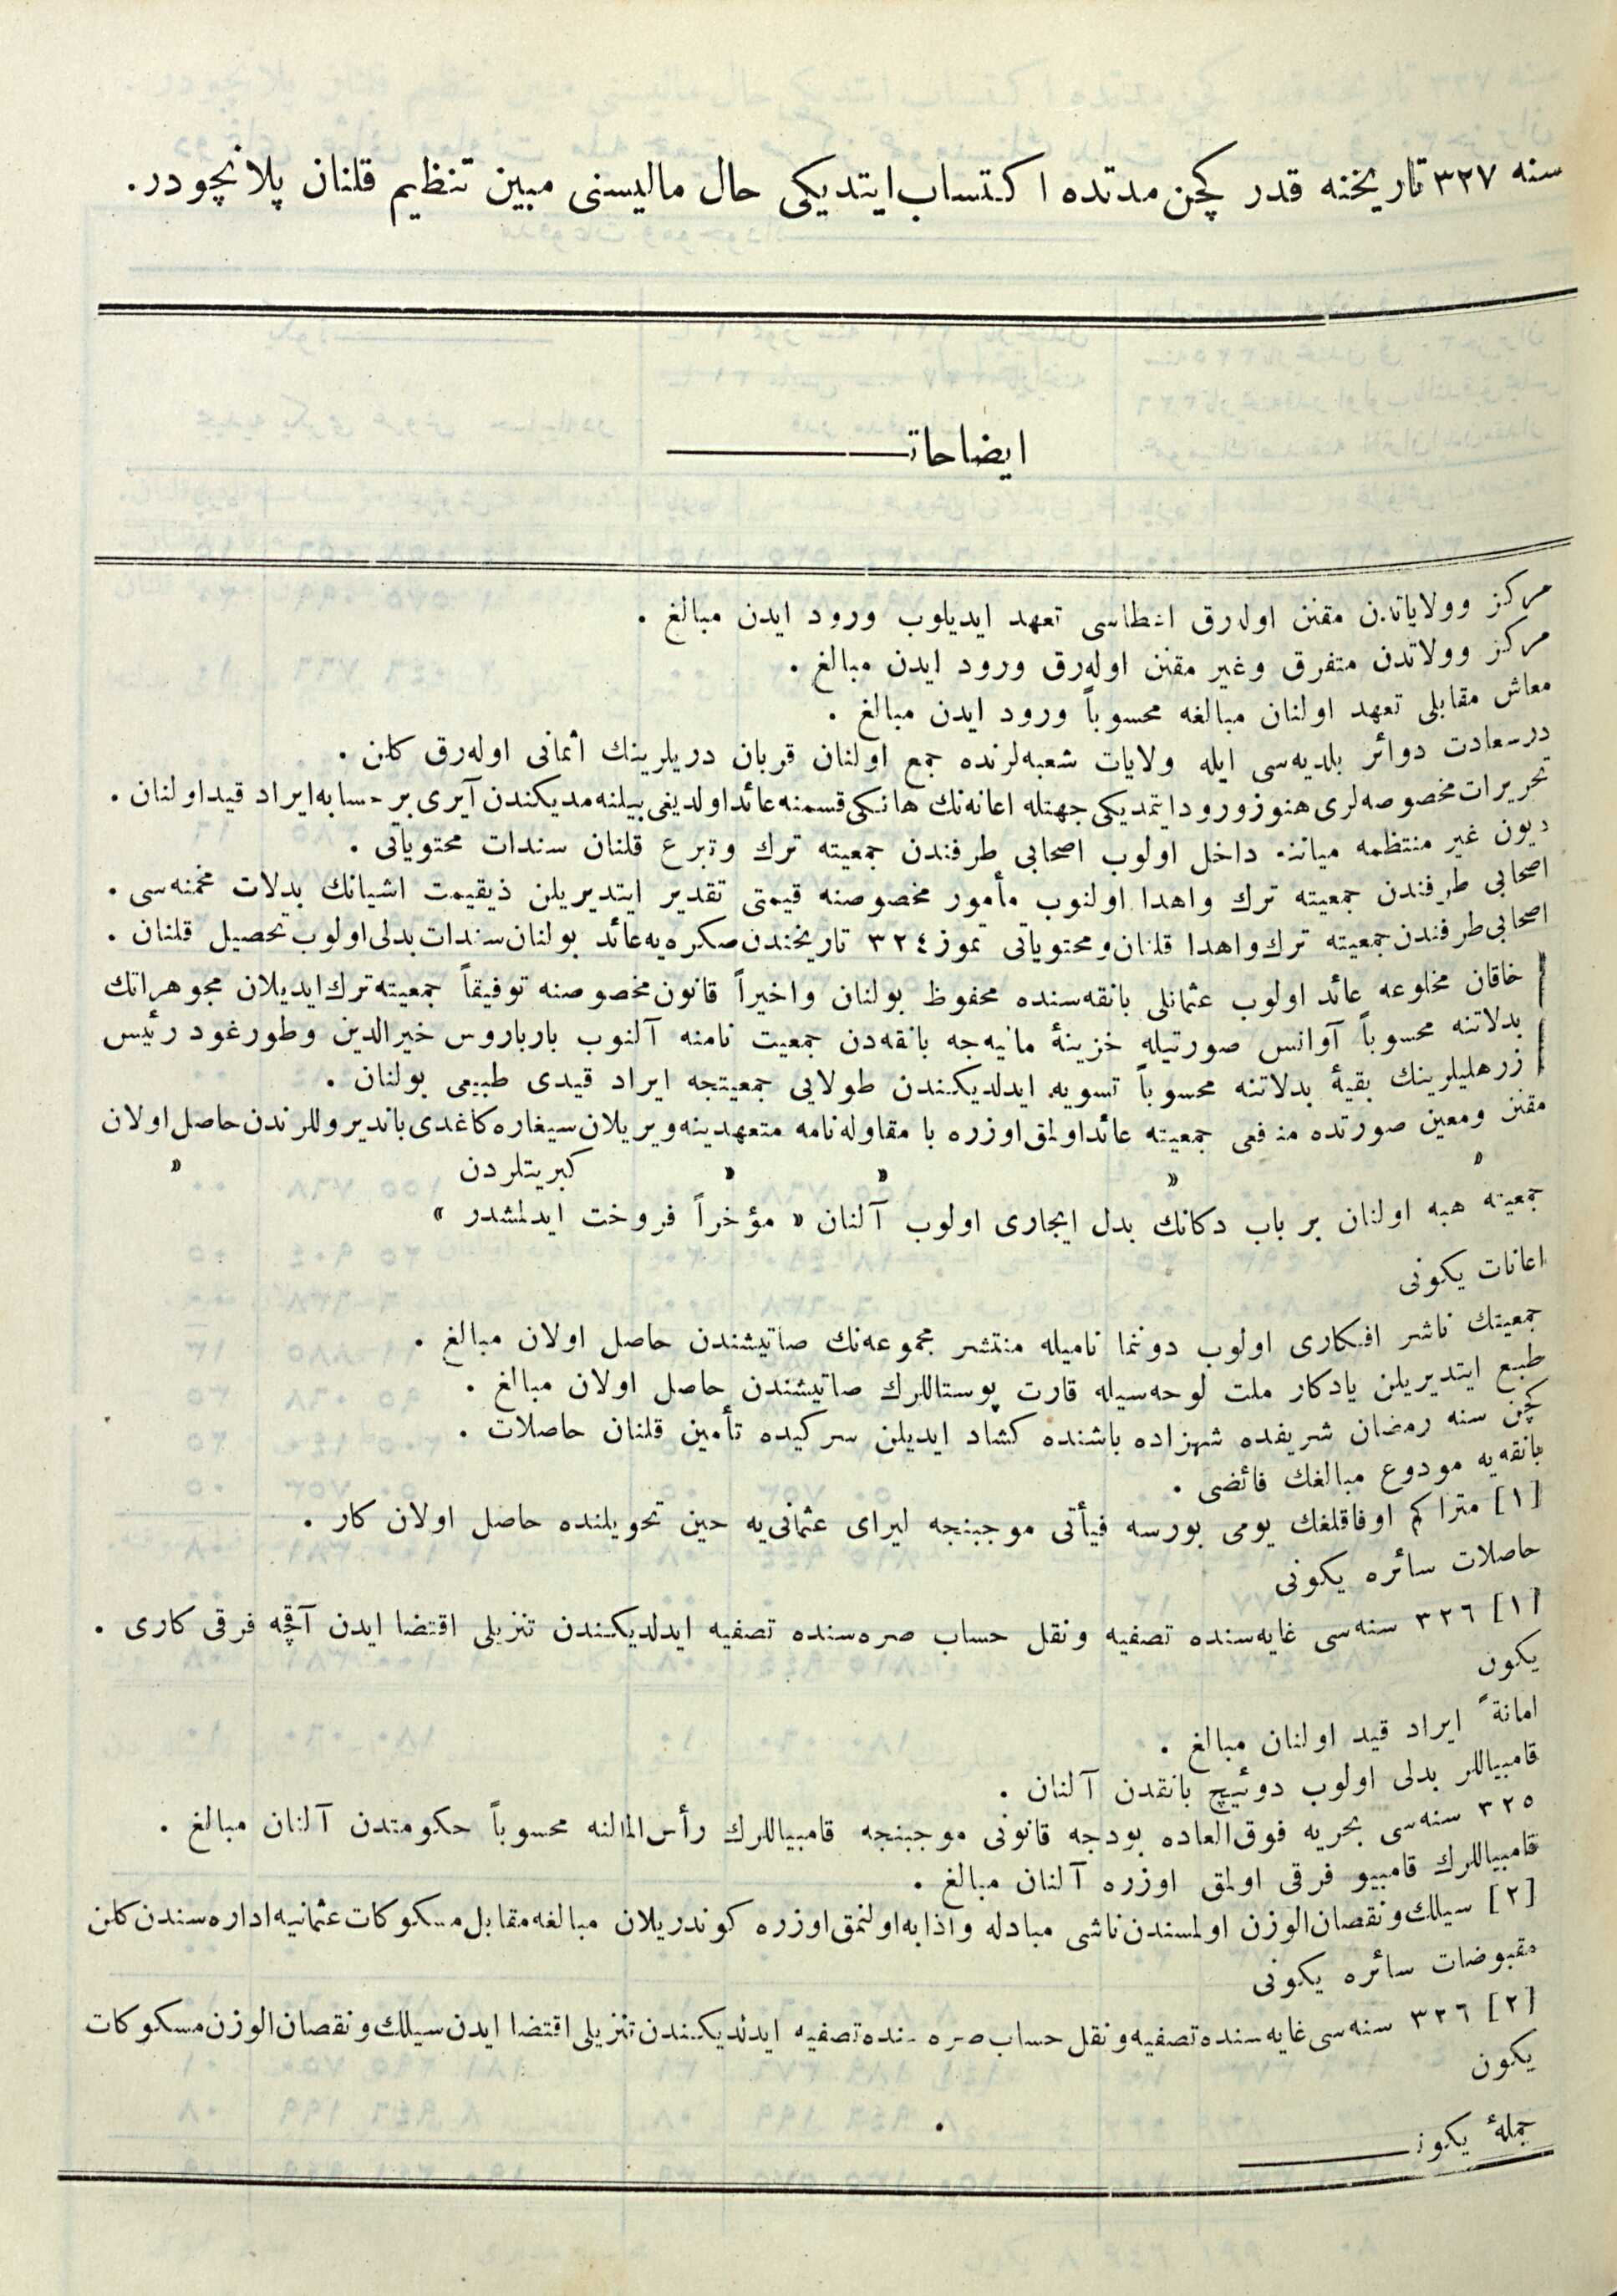 سنه ٣٢٧ تاريخنه قدر كچن مدتده اكتساب ايتديكى حال ماليسنى مبين تنظيم قلنان پلانچودر.
ايضاحات
مركز وولاياتدن مقنن اوله‌رق اعطاسى تعهد ايديلوب ورود ايدن مبالغ .
مركز وولاتدن متفرق وغير مقنن اوله‌رق ورود ايدن مبالغ .
معاش مقابلى تعهد اولنان مبالغه محسوباً ورود ايدن مبالغ .
درسعادت دوائر بلديه‌سى ايله ولايات شعبه‌لرنده جمع اولنان قربان دريلرينك اثمانى اوله‌رق كلن .
تحريرات مخصوصه‌لرى هنوز ورود ايتمديكى جهتله اعانه‌نك هانكى قسمنه عائد اولديغى بيلنه‌مديكندن آيرى بر حسابه ايراد قيد اولنان .
ديون غير منتظمه مياننه داخل اولوب اصحابى طرفندن جمعيته ترك وتبرع قلنان سندات محتوياتى .
اصحابى طرفندن جمعيته ترك واهدا اولنوب مأمور مخصوصنه قيمتى تقدير ايتديريلن ذيقيمت اشيانك بدلات مخمنه‌سى .
اصحابى طرفندن جمعيته ترك واهدا قلنان ومحتوياتى تموز ٣٢٤ تاريخندن صكره‌يه عائد بولنان سندات بدلى اولوب تحصيل قلنان .
خاقان مخلوعه عائد اولوب عثمانلى بانقه‌سنده محفوظ بولنان واخيراً قانون مخصوصنه توفيقاً جمعيته ترك ايديلان مجوهراتك
بدلاتنه محسوباً آوانس صورتيله خزينهٔ ماليه‌جه بانقه‌دن جمعيت نامنه آلنوب بارباروس خيرالدين وطورغود رئيس
زرهليلرينك بقيهٔ بدلاتنه محسوباً تسويه ايدلديكندن طولايى جمعيتجه ايراد قيدى طبيعى بولنان .
مقنن ومعين صورتده منافعى جمعيته عائد اولمق اوزره با مقاوله‌نامه متعهدينه ويريلان سيغاره كاغدى باندير وللرندن حاصل اولان
» » » » كبريتلردن »
جمعيته هبه اولنان بر باب دكانك بدل ايجارى اولوب آلنان « مؤخراً فروخت ايدلمشدر »
اعانات يكونى
جمعيتك ناشر افكارى اولوب دوننما ناميله منتشر مجموعه‌نك صاتيشندن حاصل اولان مبالغ .
طبع ايتديريلن يادكار ملت لوحه‌سيله قارت پوستاللرك صاتيشندن حاصل اولان مبالغ .
كچن سنه رمضان شريفده شهزاده باشنده كشاد ايديلن سركيده تأمين قلنان حاصلات .
بانقه‌يه مودوع مبالغك فائضى .
[١] متراكم اوفاقلغك يومى بورسه فيأتى موجبنجه ليراى عثمانى‌يه حين تحويلنده حاصل اولان كار .
حاصلات سائره يكونى
[١] ٣٢٦ سنه‌سى غايه‌سنده تصفيه ونقل حساب صره‌سنده تصفيه ايدلديكندن تنزيلى اقتضا ايدن آقچه فرقى كارى .
يكون
امانةً ايراد قيد اولنان مبالغ .
قامبياللر بدلى اولوب دوئيچ بانقدن آلنان .
٣٢٥ سنه‌سى بحريه فوق‌العاده بودجه قانونى موجبنجه قامبياللرك رأس‌المالنه محسوباً حكومتدن آلنان مبالغ .
قامبياللرك قامبيو فرقى اولمق اوزره آلنان مبالغ .
[٢] سيلك ونقصان‌الوزن اولمسندن ناشى مبادله واذابه اولنمق اوزره كوندريلان مبالغه مقابل مسكوكات عثمانيه اداره‌سندن كلن
مقبوضات سائره يكونى
[٢] ٣٢٦ سنه‌سى غايه‌سنده تصفيه ونقل حساب صره‌سنده تصفيه ايدلديكندن تنزيلى اقتضا ايدن سيلك ونقصان الوزن مسكوكات
يكون
جملهٔ يكون